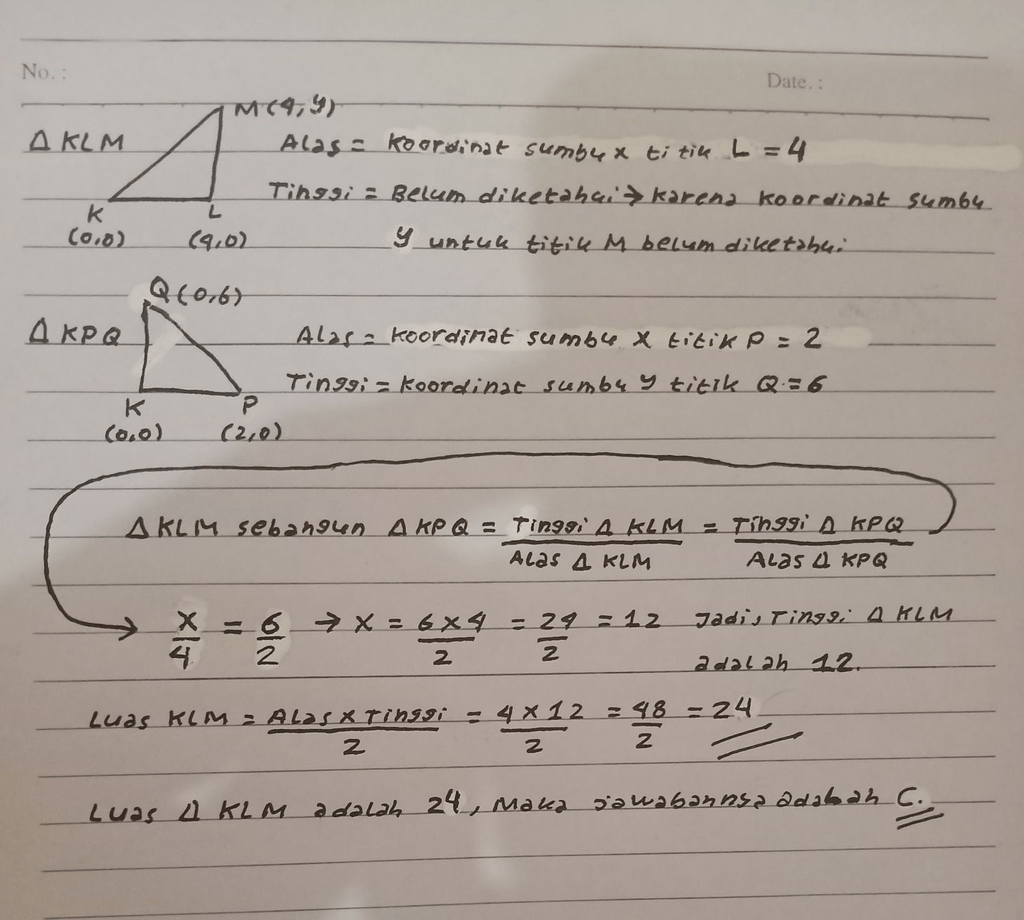 No. :
Date. :
M(4,y)
Δ KLM
Alas = Koordinat sumbu x titik L = 4
Tinggi = Belum diketahui → karena koordinat sumbu
K
L
(0,0)
(4,0)
y untuk titik M belum diketahui
Q(0,6)
Δ KPQ
Alas = Koordinat sumbu x titik P = 2
Tinggi = koordinat sumbu y titik Q = 6
K
P
(0,0)
(2,0)
Δ KLM sebangun Δ KPQ = Tinggi Δ KLM = Tinggi Δ KPQ
Alas Δ KLM
Alas Δ KPQ
x/4 = 6/2 → x = 6x4/2 = 24/2 = 12 Jadi, Tinggi Δ KLM
adalah 12.
Luas KLM = Alas x Tinggi/2 = 4 x 12/2 = 48/2 = 24
Luas Δ KLM adalah 24, Maka jawabannya adalah C.